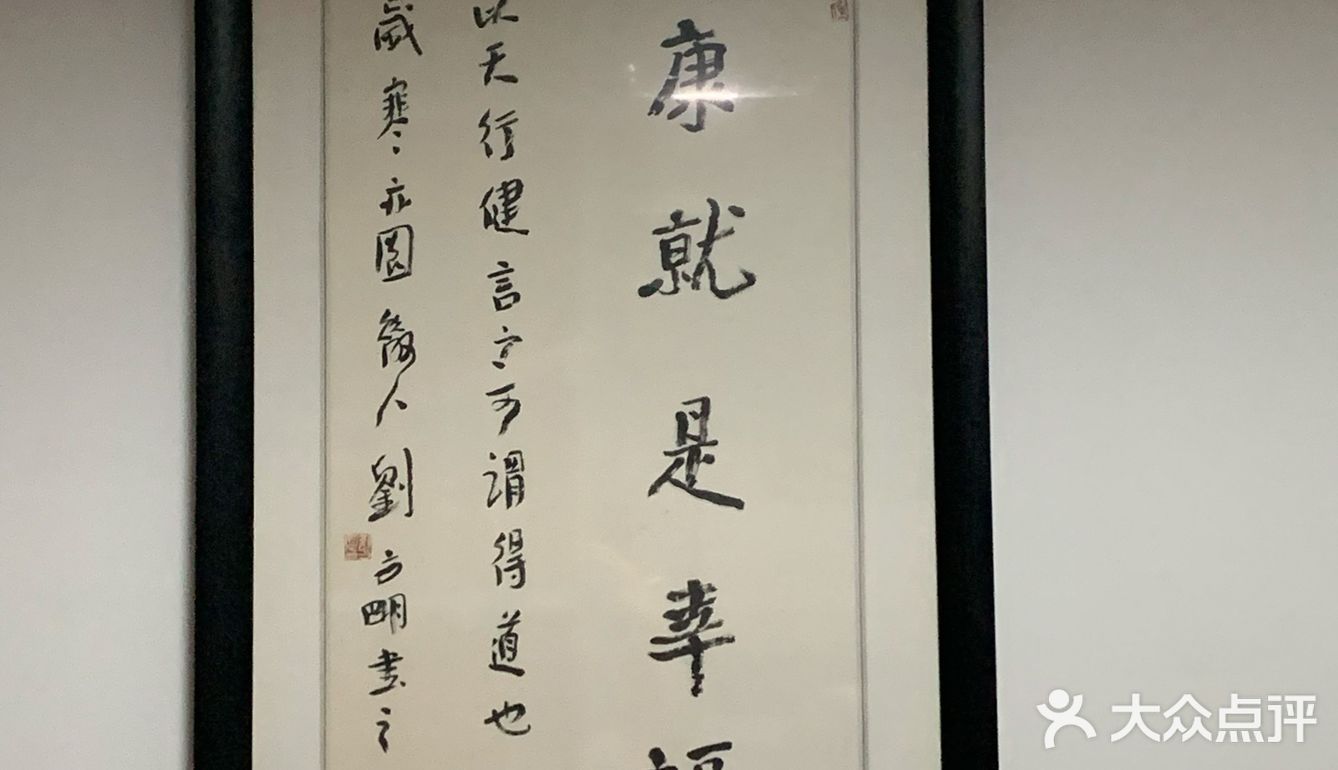 康就是幸福
以天行健言之可谓得道也
岁寒于园主人刘方明书之
大众点评